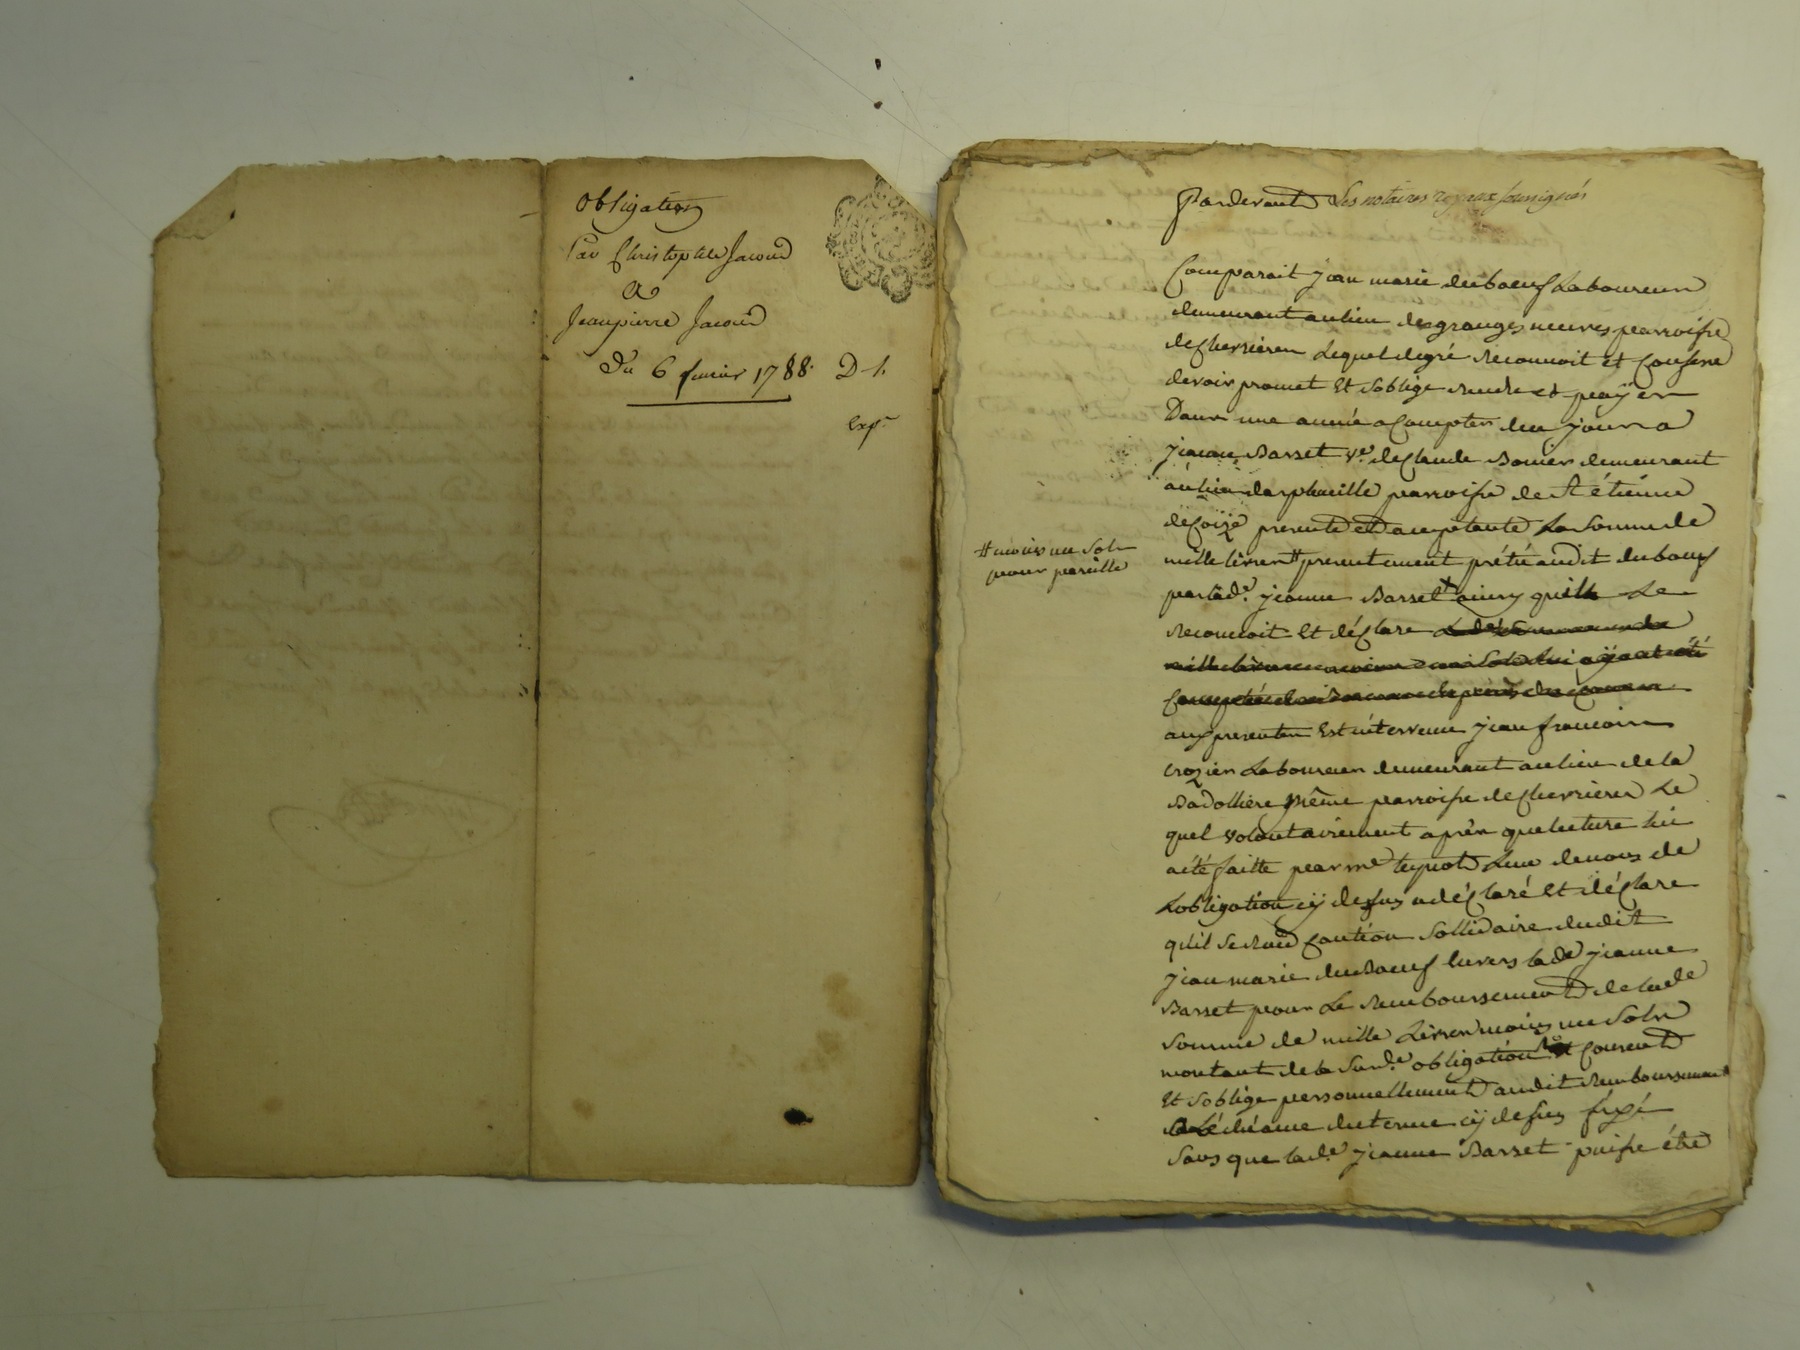 obligation
Par Christophle Jacoud
a
Jeanpierre Jacoud
Du 6 fevrier 1788. D-1.
exp.
Pardevant Les notaires royaux soussignés
Comparait jean marie duboeuf Laboureur
demeurant au lieu des granges neuves parroisse
de Chevrieres Lequel de gré reconnoit et Confesse
devoir promet Et s'oblige rendre et payer
Dans une année a Compter du jour a
jeanne Barset ve. de Claude Bonier demeurant
au lieu de parroisse de St étienne
de Coize presente et acceptante La Somme de
mille livres # presentement prété audit duboeuf
par lade. jeanne Barset ainsy quil Le
# moins un Sols
pour pareille
reconnoit Et déclare
aux presentes Est intervenu jean francois
crozier Laboureur demeurant au lieu de la
Badolliere même parroisse de Chevrieres Le
quel volontairement aprés que lecture lui
a été faitte par me teynot L'un de nous de
L'obligation cÿ dessus a déclaré Et déclare
qu'il se rend Caution Sollidaire dudit
jean marie duBoeuf Envers lade jeanne
Barset pour Le Remboursement de lade
Somme de mille Livres moins un Sols
montant de la Susde. obligation Consent
Et s'oblige personnellement audit Remboursement
a L'échéance du terme cÿ dessus fixé
Sans que lade jeanne Barset puisse étre